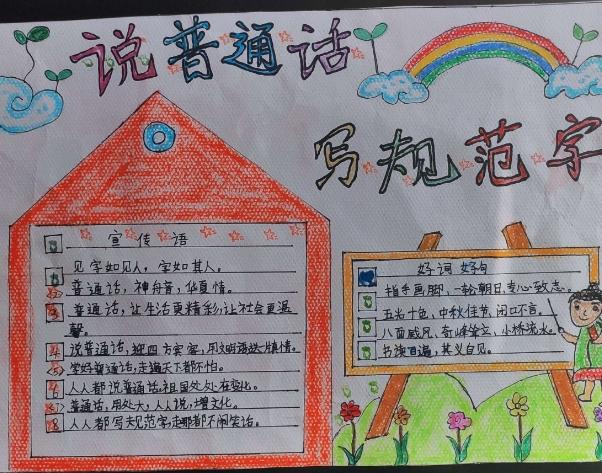 说普通话
写规范字
宣传语
见字如见人，字如其人。
普通话，神舟音，华夏情。
普通话，让生活更精彩，让社会更温
馨。
说普通话，迎四方宾客，用文明语，送一腔情。
学好普通话，走遍天下都不怕。
人人都说普通话，祖国处处在变化。
普通话，用处大，人人说，增文化。
人人都写规范字，走哪都不闹笑话。
好词好句
指手画脚，一轮朝日，专心致志。
五光十色，中秋佳节，闭口不言。
八面威风，奇峰耸立，小桥流水。
书读百遍，其义自见。